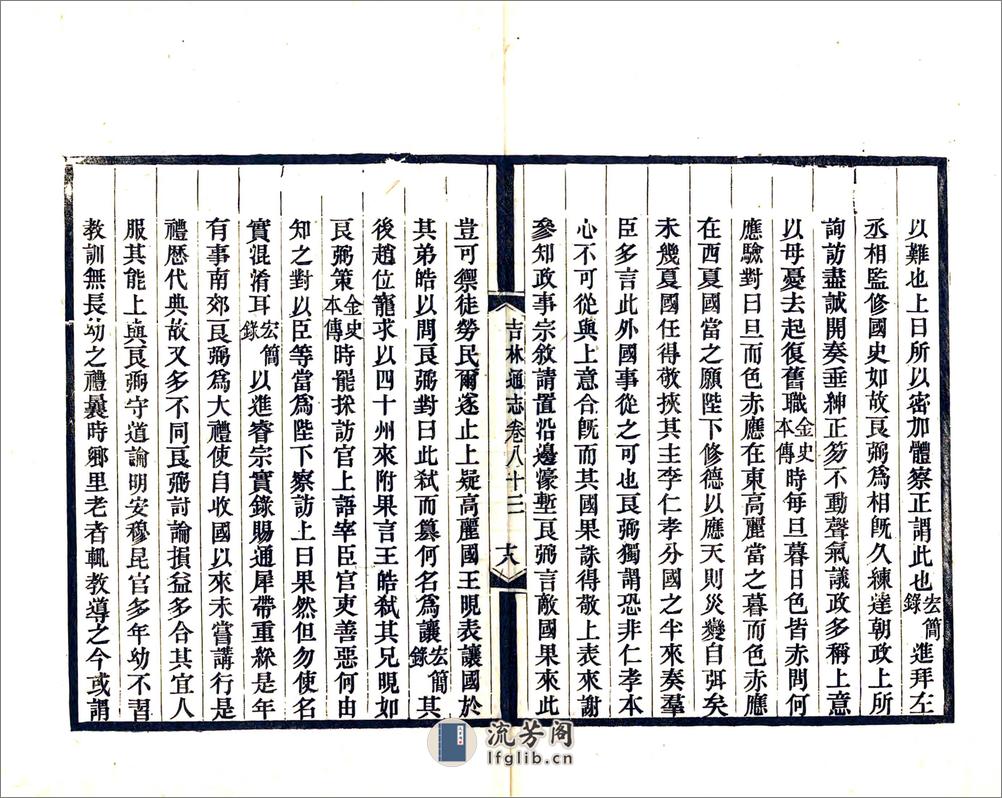 以難也上曰所以密加體察正謂此也宏簡錄進拜左
丞相監修國史如故良弼爲相旣久練達朝政上所
詢訪盡誠開奏垂紳正笏不動聲氣議政多稱上意
以母憂去起復舊職金史本傳時每旦暮日色皆赤問何
應驗對曰旦而色赤應在東高麗當之暮而色赤應
在西夏國當之願陛下修德以應天則災變自弭矣
未幾夏國任得敬挾其主李仁孝分國之半來奏羣
臣多言此外國事從之可也良弼獨謂恐非仁孝本
心不可從與上意合旣而其國果誅得敬上表來謝
參知政事宗敘請置沿邊濠塹良弼言敵國果來此
吉林通志卷八十三 十八
豈可禦徒勞民爾遂止上疑高麗國王晛表讓國於
其弟皓以問良弼對曰此弒而篡何名爲讓宏簡錄其
後趙位寵求以四十州來附果言王皓弒其兄晛如
良弼策金史本傳時罷採訪官上語宰臣官吏善惡何由
知之對以臣等當爲陛下察訪上曰果然但勿使名
實混淆耳宏簡錄以進睿宗實錄賜通犀帶重綵是年
有事南郊良弼爲大禮使自收國以來未嘗講行是
禮歷代典故又多不同良弼討論損益多合其宜人
服其能上與良弼守道論明安穆昆官多年幼不習
教訓無長幼之禮曩時鄉里老者輒教導之今或謂
流芳阁
lfglib.cn